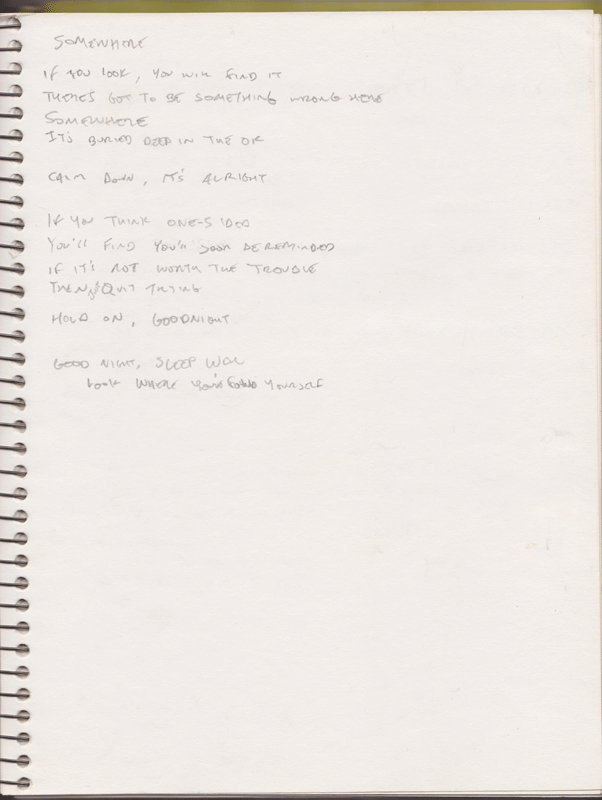 SOMEWHERE
IF YOU LOOK, YOU WILL FIND IT
THERE'S GOT TO BE SOMETHING WRONG HERE
SOMEWHERE
IT'S BURIED DEEP IN THE OK
CALM DOWN, IT'S ALRIGHT
IF YOU THINK ONE-SIDED
YOU'LL FIND YOU'LL SOON BE REMINDED
IF IT'S NOT WORTH THE TROUBLE
THEN QUIT TRYING
HOLD ON, GOODNIGHT
GOOD NIGHT, SLEEP WELL
LOOK WHERE YOU'VE FOUND YOURSELF